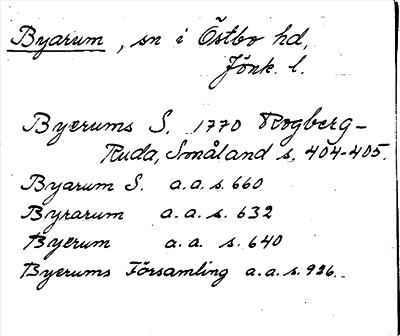 Byarum, sn i Östbo hd,
Jönk. l.
Byerums S. 1770 Rogberg-
Ruda, Småland s. 404-405.
Byarum S. a.a.s. 660
Byrarum a.a.s. 632
Byerum a.a. s. 640
Byerums Församling a.a.s. 926.